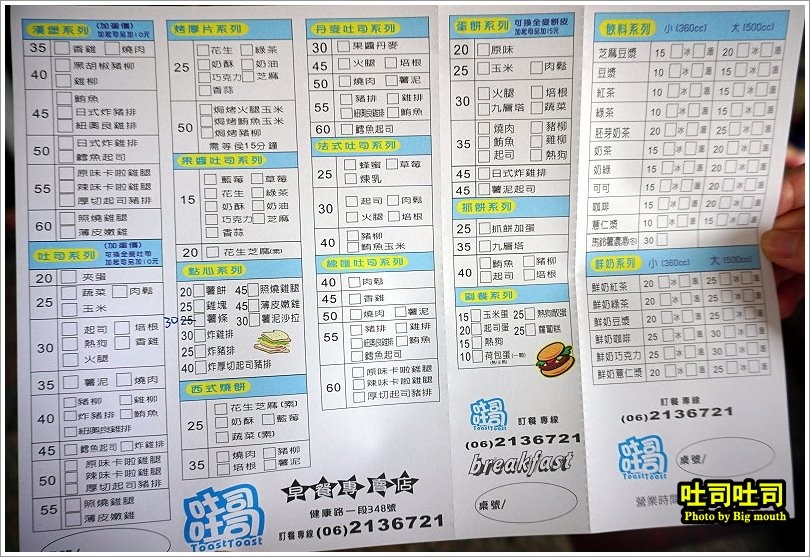 漢堡系列 (加蛋價) 加起司另加10元
35 香雞 燒肉
40 黑胡椒豬柳
雞柳
45 鮪魚
日式炸豬排
紐奧良雞排
50 日式炸雞排
鱈魚起司
55 原味卡啦雞腿
辣味卡啦雞腿
厚切起司豬排
60 照燒雞腿
薄皮嫩雞
吐司系列 (加蛋價) 可換全麥吐司 加起司另加10元
20 夾蛋
25 蔬菜 肉鬆
玉米
30 起司 培根
熱狗 香雞
火腿
35 薯泥 燒肉
40 豬柳 雞柳
炸豬排 鮪魚
紐奧良雞排
45 鱈魚起司 炸雞排
50 原味卡啦雞腿
辣味卡啦雞腿
厚切起司豬排
55 照燒雞腿
薄皮嫩雞
桌號/
烤厚片系列
25 花生 綠茶
奶酥 奶油
巧克力 芝麻
香蒜
50 焗烤火腿玉米
焗烤鮪魚玉米
焗烤豬柳
需等侯15分鐘
果醬吐司系列
15 藍莓 草莓
花生 綠茶
奶酥 奶油
巧克力 芝麻
香蒜
20 花生芝麻(素)
點心系列
20 薯餅 45 照燒雞腿
25 雞塊 45 薄皮嫩雞
30 25 薯條 30 薯泥沙拉
30 炸雞排
25 炸豬排
40 厚切起司豬排
西式燒餅
25 花生芝麻(素)
奶酥 藍莓
蔬菜(素)
35 燒肉 豬柳
培根 薯泥
吐司
吐司
ToastToast
丹麥吐司系列
30 果醬丹麥
45 火腿 培根
50 燒肉 薯泥
55 豬排 雞排
紐奧良雞排 鮪魚
60 鱈魚起司
法式吐司系列
25 蜂蜜 草莓
煉乳
30 起司 肉鬆
火腿 培根
40 豬柳
鮪魚玉米
總匯吐司系列
40 肉鬆
45 香雞
50 燒肉 薯泥
55 豬排 雞排
紐奧良雞排 鮪魚
鱈魚起司
60 原味卡啦雞腿
辣味卡啦雞腿
厚切起司豬排
早餐專賣店
健康路一段348號
訂餐專線 (06)2136721
蛋餅系列 可換全麥餅皮 加起司另加15元
20 原味
25 玉米 肉鬆
30 火腿 培根
九層塔 蔬菜
35 燒肉 豬柳
鮪魚 雞柳
起司 熱狗
45 日式炸雞排
45 薯泥起司
抓餅系列
25 抓餅加蛋
35 九層塔
40 鮪魚 豬柳
燒肉 起司
副餐系列
15 玉米蛋 25 熱狗散蛋
20 起司蛋 25 蘿蔔糕
15 熱狗
10 荷包蛋(一顆)
吐司
吐司
ToastToast
訂餐專線
(06)2136721
breakfast
桌號/
飲料系列 小(360cc) 大(500cc)
芝麻豆漿 15 冰 溫 20 冰 溫
豆漿 10 冰 溫 15 冰 溫
紅茶 10 冰 溫 15 冰 溫
綠茶 10 冰 溫 15 冰 溫
胚芽奶茶 20 冰 溫 25 冰 溫
奶茶 15 冰 溫 20 冰 溫
奶綠 15 冰 溫 20 冰 溫
可可 15 冰 溫 20 冰 溫
咖啡 15 冰 溫 20 冰 溫
薏仁漿 10 冰 溫 15 冰 溫
馬鈴薯濃湯(冬) 30
鮮奶系列 小(360cc) 大(500cc)
鮮奶紅茶 20 冰 溫 25 冰 溫
鮮奶綠茶 20 冰 溫 25 冰 溫
鮮奶豆漿 20 冰 溫 25 冰 溫
鮮奶咖啡 25 冰 溫 30 冰 溫
鮮奶巧克力 25 冰 溫 30 冰 溫
鮮奶薏仁漿 20 冰 溫 25 冰 溫
訂餐專線
(06)2136721
吐司
吐司
ToastToast
桌號/
營業時間
吐司吐司
Photo by Big mouth